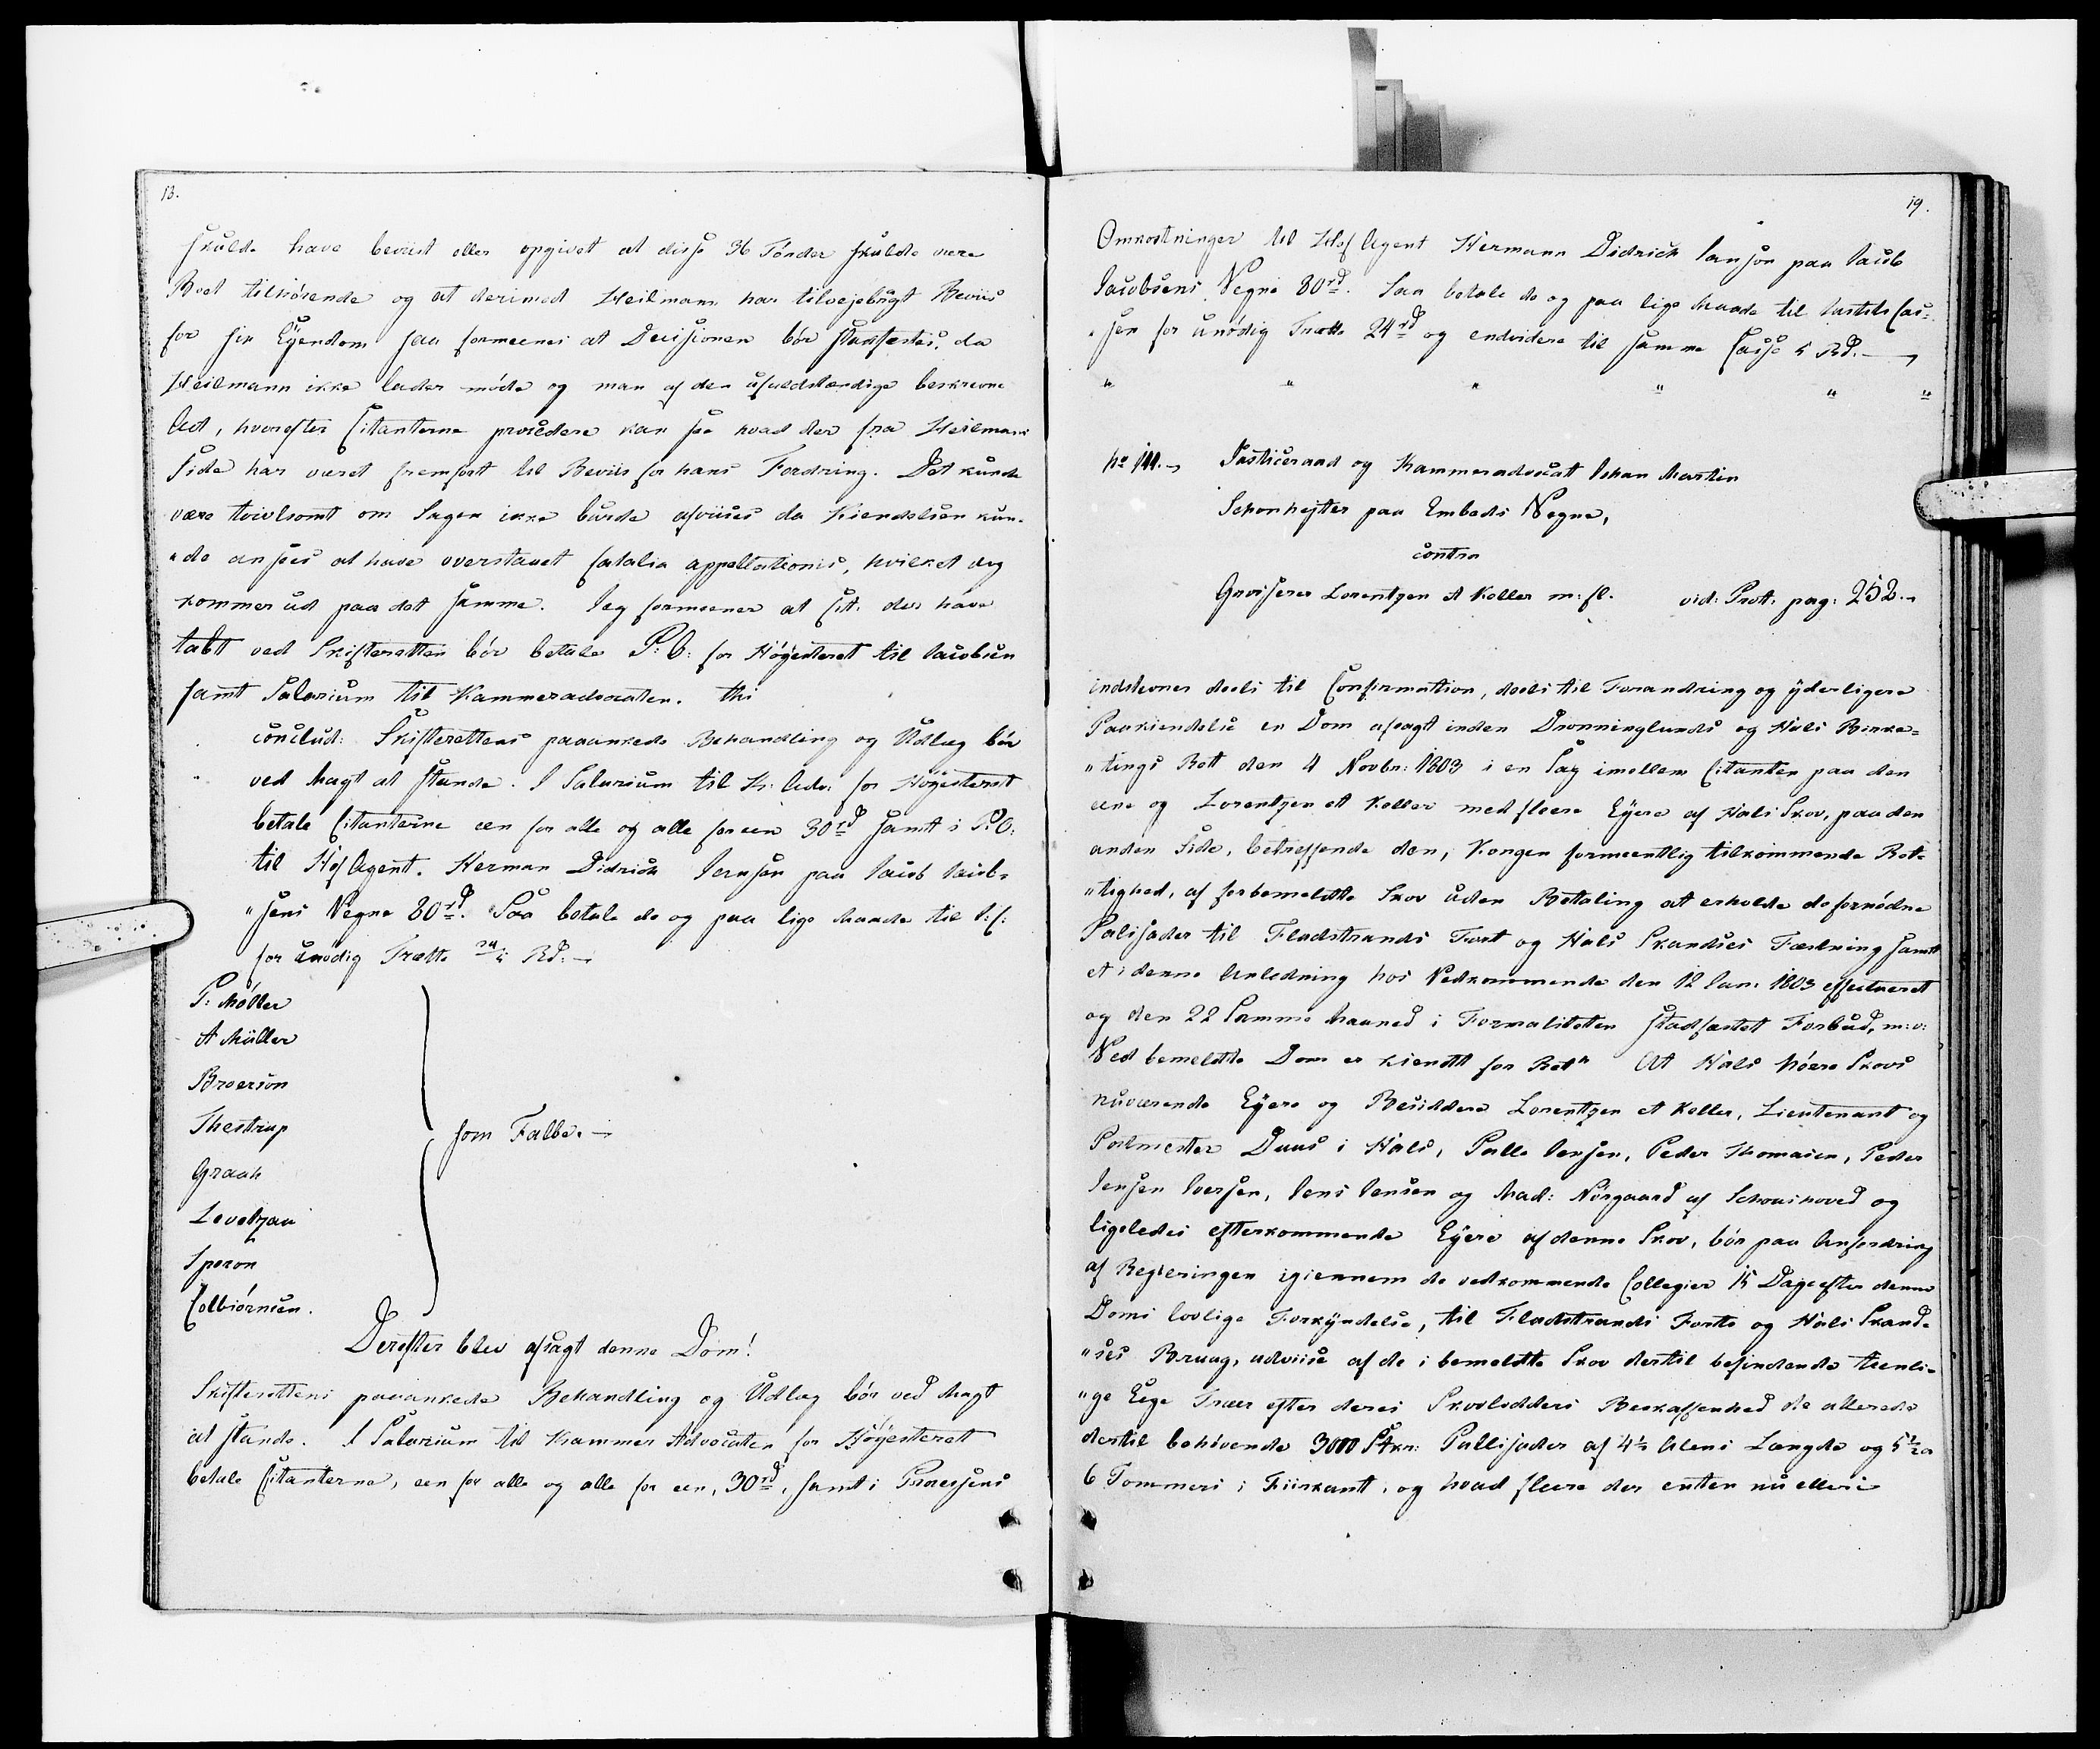 13.
skulde have beviist eller opgivet at disse 36 Tönder skulde være
Boet tilhörende og at derimod Heilmann har tilvejebragt Beviis
for sin Eÿendom saa formeenes at Decisionen bör stadfæstes, da
Heilmann ikke lader möde og man af den ufuldstændige beskrevne
Act, hvorefter Citanterne procedere kan see hvad der fra Heilmans
Side har været fremfört til Beviis for hans Fordring. Det kunde
være tvivlsomt om Sagen ikke burde afviises da Kiendelsen kun-
"de ansees at have overstaaet fatalia appellationis, hvilket dog
kommer ud paa det samme. Jeg formeener at Cit: der have
tabt ved Skifteretten bör betale P: O: for Höÿesteret til Jacobsen
samt Salarium til Kammeradvocaten. thi
conclud: Skifterettens paaankede Behandling og Udlæg bör
ved Magt at stande. I Salarium til K: Adv: for Höÿesteret
betale Citanterne een for alle og alle for een 30 rd samt i P: O:
til Hof Agent. Herman Didrich Jansön paa Jacob Jacob-
"sens Vegne 80 rd. Saa betale de og paa lige Maade til J: C:
for unödig Trætte RD. -
P: Möller
A Müller
Broerson
Thestrup
Graah
Levetzau
Speron
Colbiörnsen.
som Falbe. -
Derefter blev afsagt denne Dom!
Skifterettens paaankede Behandling og Udlæg bör ved Magt
at stande. I Salarium til Kammer Advocaten for Höÿesteret
betale Citanterne, een for alle og alle for een, 30 rd, samt i Processens
19.
Omkostninger til Hof Agent Hermann Didrich Jansön paa Jacob
Jacobsens Vegne 80 rd. Saa betale de og paa lige Maade til Justits Cas-
"sen for unödig Trætte 24 rd og endvidere til samme Casse 5 RD. -
" " " " " "
No 111. Justiceraad og Kammeradvocat Johan Martin
Schonheÿter paa Embeds Vegne,
contra
Grosserer Lorentzen et Koller m: fl. vid: Prot: pag: 252. -
indstevner deels til Confirmation, deels til Forandring og ÿderligere
Paakiendelse en Dom afsagt inden Dronninglunds og Hals Birke-
"tings Ret den 4 Novbr: 1803 i en Sag imellem Citanten paa den
eene og Lorentzen et Koller med fleere Eÿere af Hals Skov, paa den
anden Side, betreffende den, Kongen formeentlig tilkommende Ret-
"tighed, af forbemeldte Skov uden Betaling at erholde de fornödne
Palisader til Fladstrands Fort og Hals Skandses Fæstning samt
et i denne Anledning hos Vedkommende den 12 Jan: 1803 effectueret
og den 22 Samme Maaned i Formaliteten stadfæstet Forbud, m: v:
Ved bemeldte Dom er kiendt for Ret" At Hals Nörre Skovs
nuværende Eÿere og Besiddere Lorentzen et Koller, Lieutenant og
Postmester Duus i Hals, Palle Jensen, Peder Thomasen, Peder
Jensen Iversen, Jens Jensen og Mad: Nörgaard af Schoushoved og
ligeledes efterkommende Eÿere af denne Skov, bör paa Anfordring
af Regieringen igiennem de vedkommende Collegier 15 Dage efter denne
Doms lovlige Forkÿndelse, til Fladstrands Forts og Hals Skand-
"ses Brug, udviise af de i bemeldte Skov dertil befindende tienli-
"ge Eege Træer efter deres Skovlodders Beskaffenhed de allerede
dertil behövende 3000 Stkr: Pallisader af 4½ Alens Længde og 5½ a
6 Tommers i Fiirkant, og hvad fleere der enten nu eller i